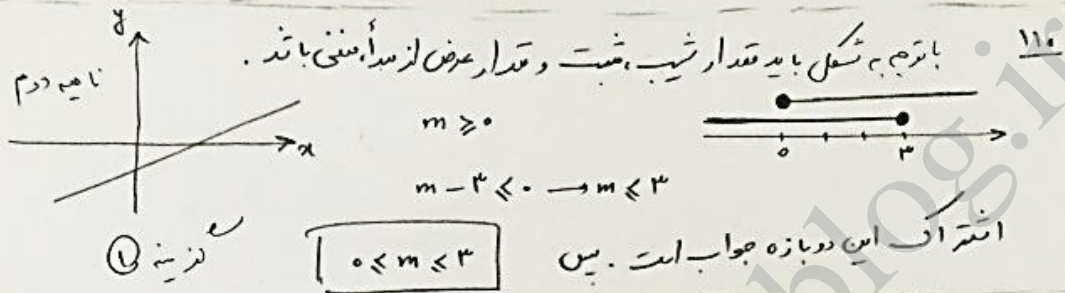 ۱۱۰ باتوجه به شکل باید مقدار شیب، مثبت و مقدار عرض از مبدأ، منفی باشد.
y
ناحیه دوم
x
m ⩾ ۰
۰ ۳
m - ۳ ⩽ ۰ → m ⩽ ۳
اشتراک این دو بازه جواب است. پس
۰ ⩽ m ⩽ ۳
گزینه ①
blog.ir